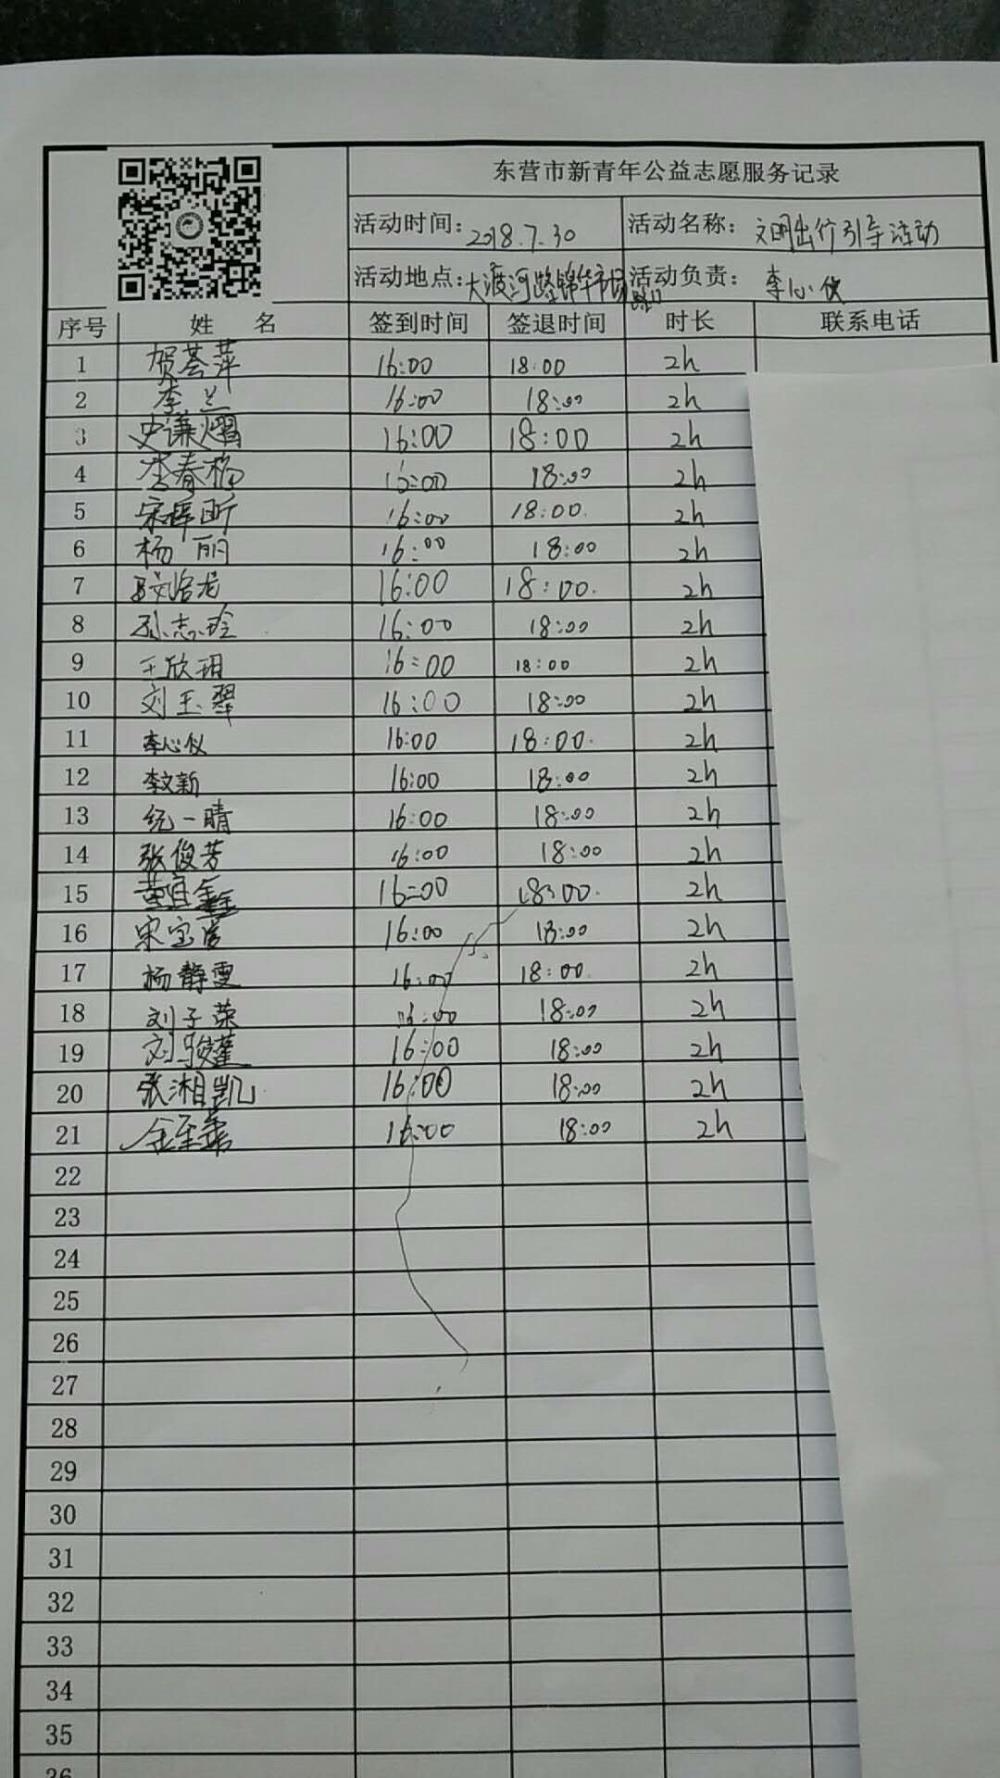 东营市新青年公益志愿服务记录
活动时间：2018.7.30 活动名称：文明出行引导活动
活动地点：大渡河路锦华市场路口 活动负责：李心仪
序号 姓 名 签到时间 签退时间 时长 联系电话
1 贺荟萍 16:00 18:00 2h
2 李兰 16:00 18:00 2h
3 史谦熠 16:00 18:00 2h
4 李春梅 16:00 18:00 2h
5 宋梓昕 16:00 18:00 2h
6 杨丽 16:00 18:00 2h
7 16:00 18:00 2h
8 孙志玲 16:00 18:00 2h
9 王欣玥 16:00 18:00 2h
10 刘玉翠 16:00 18:00 2h
11 李心仪 16:00 18:00 2h
12 李文新 16:00 18:00 2h
13 统一晴 16:00 18:00 2h
14 张俊芳 16:00 18:00 2h
15 董宜鑫 16:00 18:00 2h
16 16:00 18:00 2h
17 杨静雯 16:00 18:00 2h
18 刘子荣 16:00 18:00 2h
19 16:00 18:00 2h
20 张湘凯 16:00 18:00 2h
21 16:00 18:00 2h
22
23
24
25
26
27
28
29
30
31
32
33
34
35
36